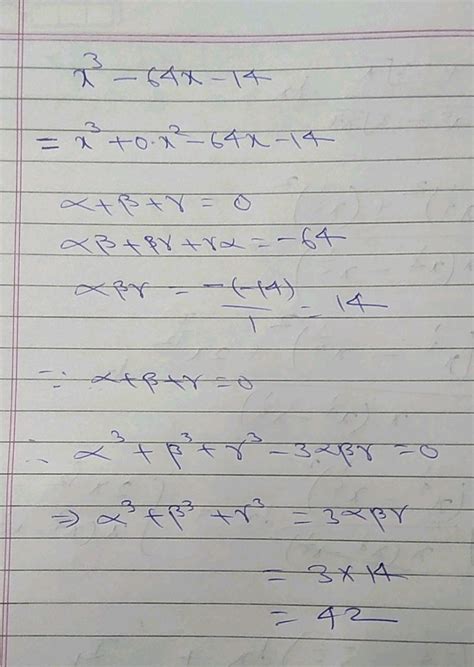 x³ - 64x - 14
= x³ + 0·x² - 64x - 14
α + β + γ = 0
αβ + βγ + γα = -64
αβγ = -(-14)/1 = 14
∵ α + β + γ = 0
∴ α³ + β³ + γ³ - 3αβγ = 0
⇒ α³ + β³ + γ³ = 3αβγ
= 3 × 14
= 42